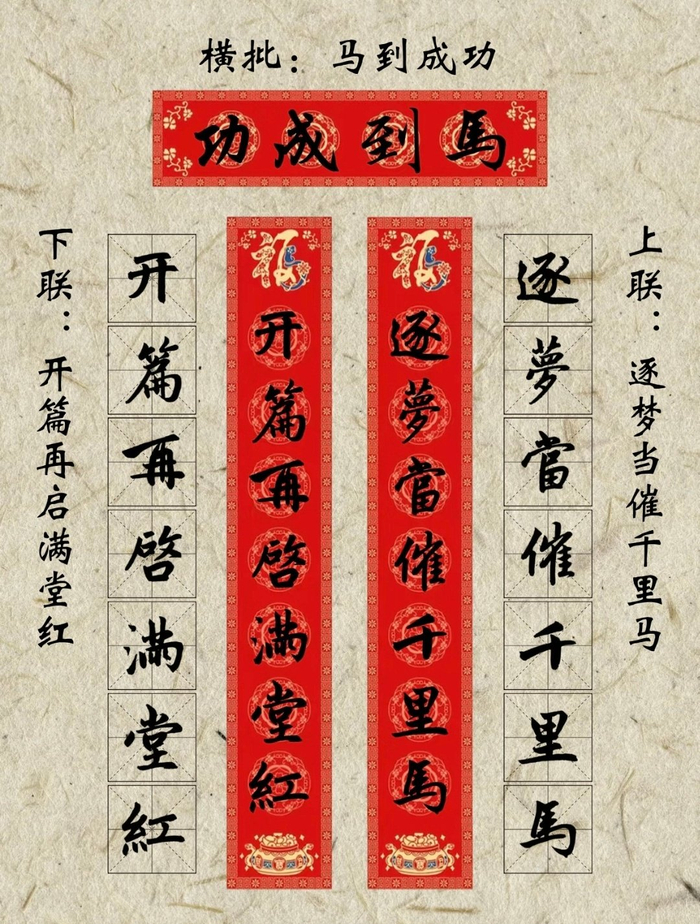 横批：马到成功
功成到馬
上联：逐梦当催千里马
逐夢當催千里馬
逐夢當催千里馬
开篇再啓满堂紅
开篇再啓满堂紅
下联：开篇再启满堂红